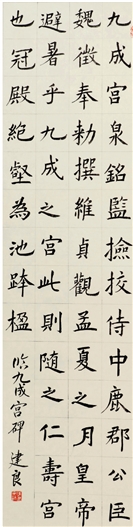 九成宮泉銘監撿挍侍中鹿郡公臣
魏徵奉勑撰維貞觀孟夏之月皇帝
避暑乎九成之宮此則随之仁壽宮
也冠殿絕壑為池跨楹
临九成宮碑 建良